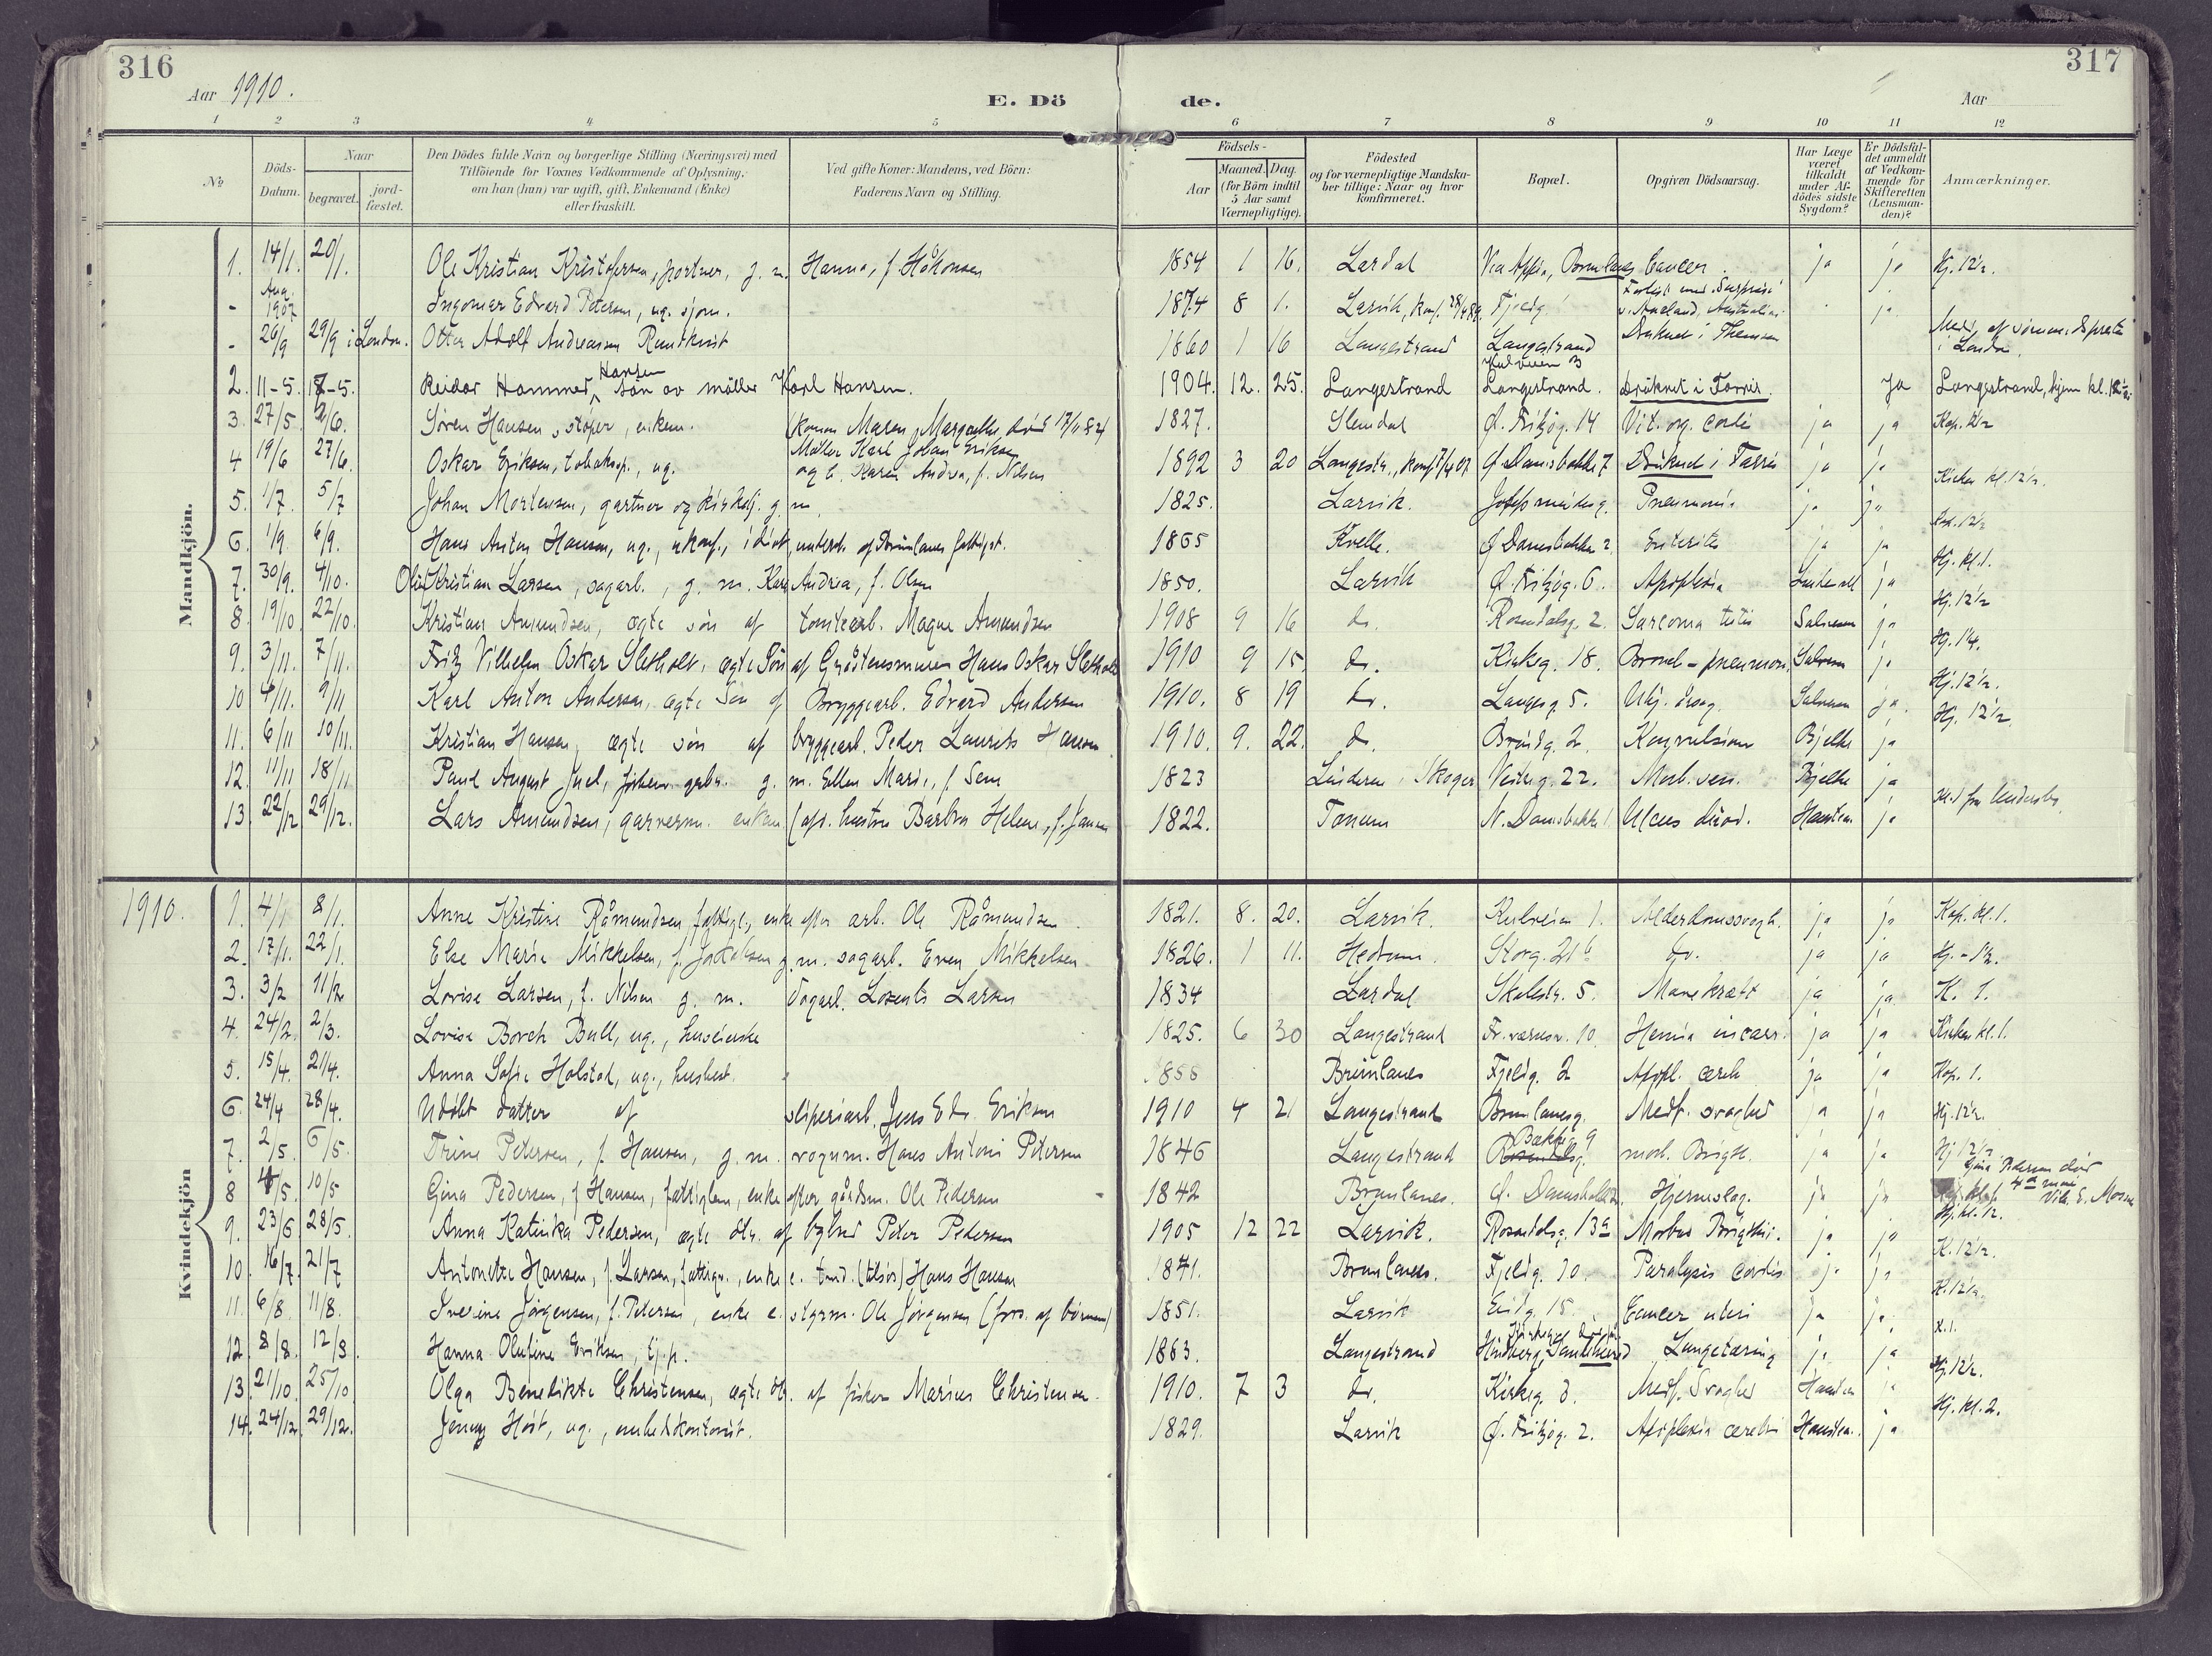 316
317
Aar 1910.
E. Dö
de.
Aar
1 2 3 4 5 6 7 8 9 10 11 12
No
Döds-Datum.
Naar
begravet.
jord-fæstet.
Den Dödes fulde Navn og borgerlige Stilling (Næringsvei) med
Tilföiende for Voxnes Vedkommende af Oplysning,
om han (hun) var ugift, gift, Enkemand (Enke)
eller fraskilt.
Ved gifte Koner: Mandens, ved Börn:
Faderens Navn og Stilling.
Födsels-
Aar
Maaned.
Dag.
(for Börn indtil
5 Aar samt
Værnepligtige).
Födested
og for værnepligtige Mandska-
ber tillige: Naar og hvor
konfirmeret.
Bopæl.
Opgiven Dödsaarsag.
Har Læge
været
tilkaldt
under Af-
dödes sidste
Sygdom?
Er Dödsfal-
det anmeldt
af Vedkom-
mende for
Skifteretten
(Lensman-
den)?
Anmærkninger.
Mandkjön.
1. 14/1. 20/1. Ole Kristian Kristofersen, portner, g. m. Hanna, f. Håkonsen 1854 1 16. Lardal Via Appia, Brunlanes Cancer. ja ja Hj. 12½.
- Aug. 1907 Ingomar Edvard Petersen, ug. sjøm. 1874 8 1. Larvik, konf. Fjeldg. Forlist med "Surprise" ja
- 26/9 29/9 i London. Otter Adolf Andreasen Rundkvist 1860 1 16 Langestrand Langestrand Druknet i Themsen
2. 11-5. 18-5. Reidar Hammer Hansen, søn av møller Karl Hansen. 1904. 12. 25. Langestrand Langestrand. Druknet i Farris. Ja Langestrand, hjem kl. 12½
3. 27/5 2/6. Søren Hansen, støper, enkem. (konen Maren Margrethe død 17/11 82) 1827. Slemdal Ø. Fritzøg. 14 Vit. org. cordis ja ja Kap. 12½
4 19/6 27/6. Oskar Eriksen, tobaksp., ug. Møller Karl Johan Eriksen og h. Karen Andrea, f. Nilsen 1892 3 20 Langestr., konf. 7/4 07 Ø. Damsbakke 7 Druknet i Farris ja ja Kirken kl. 12½.
5. 1/7 5/7 Johan Mortensen, gartner og kirketj. g. m. 1825. Larvik. Pneumoni ja ja Kap. 12½
6. 1/9. 6/9. Hans Anton Hansen, ug., ukonf., idiot, underst. af Brunlanes fattigv. 1865 Kvelle. Ø Damsbakke 2. Enteritis ja ja Hj. kl. 1.
7. 30/9. 4/10. Oluf Kristian Larsen, sagarb., g. m. Karen Andrea, f. Olsen 1850. Larvik Ø. Fritzøg. 6. Apoplexia ja Hj. 12½
8. 19/10 22/10. Kristian Amundsen, ægte søn af tomtearb. Magnus Amundsen 1908 9 16 do. Rosendalsg. 2. Sarcoma testis Salvesen ja Hj. 1¼.
9. 3/11. 7/11. Fritz Vilhelm Oskar Sletholt, ægte Søn af Gråstensmurer Hans Oskar Sletholt 1910 9 15. do. Kirkeg. 18. Bronch-pneumon. Salvesen ja Hj. 12½.
10 4/11. 9/11 Karl Anton Andersen, ægte Søn af Bryggearb. Edvard Andersen 1910. 8 19 do. Langesg. 5. Ubj. årsag. Salvesen ja. Hj. 12½.
11. 6/11 10/11. Kristian Hansen, ægte søn af bryggearb. Peder Laurits Hansen 1910. 9. 22. do. Brandg. 2. Konvulsioner Bjelke ja
12. 11/11 18/11. Paul August Juel, g. m. Ellen Marie, f. Sem 1823 Linderen i Skoger Vestreg. 22. Morb. ves. Bjelke ja
13. 22/12 29/12. Lars Amundsen, garverm. enkem. (afd. hustru Barbra Helene, f. Jansen 1822. Tanum N. Damsbakke 1. Ulcus duod. ja
1910.
Kvindekjön
1. 4/1 8/1. Anne Kristine Råmundsen, fattigl., enke efter arb. Ole Råmundsen. 1821. 8. 20. Larvik. Kulveien 1. Alderdomssvagh. ja ja Kap. kl. 1.
2. 17/1. 22/1. Else Marie Mikkelsen, f. Jakobsen g. m. sagarb. Even Mikkelsen 1826. 1 11. Hedrum. Storg. 21b do. ja ja Hj. - 1½.
3. 3/2 11/2 Lovise Larsen, f. Nilsen g. m. Sagarb. Lorents Larsen 1834 Lardal Skolestr. 5. Mavekræft ja ja K. 1.
4. 24/2. 2/3. Lovise Borch Bull, ug., huseierske 1825. 6 30 Langestrand Fr. værnsv. 10. Hernia incarc. ja ja Kirken kl. 1.
5. 15/4. 21/4. Anna Sofie Holstad, ug., husbest. 1858 Brunlanes Fjeldg. 2 Apopl. cereb. ja ja Kap. 1.
6. 24/4 28/4. Udøbt datter af sliperiarb. Jens Edv. Eriksen 1910 4 21 Langestrand Brunlanesg. Medf. svaghed ja ja Hj. 12½.
7. 2/5. 6/5. Trine Petersen, f. Hansen, g. m. vognm. Hans Anton Petersen 1846 Langestrand Bækkeg. 9 morb. Brigth. ja ja Hj 12½
8 4/5. 10/5 Gina Pedersen, f Hansen, fattiglem, enke efter gårdm. Ole Pedersen 1842 Brunlanes. Ø. Damsbakke 2. Hjerneslag. ja ja Gina Pedersen død 4de mai Vilh. E. Moss
9. 23/6 28/6. Anna Katinka Pedersen, ægte dtr. af bybud Peter Pedersen 1905 12 22 Larvik. Rosendalsg. 13a Morbus Brigthii. ja ja Hj. kl. 12.
10. 16/7 21/7 Antonette Hansen, f. Larsen, fattigv., enke e. tmd. (tilsøs) Hans Hansen 1841. Brunlanes. Fjeldg. 10. Paralysis cordis ja ja K. 12½.
11. 6/8. 11/8. Iverine Jørgensen, f. Petersen, enke e. styrm. Ole Jørgensen (fors. af børnene) 1851. Larvik Eidg. 15. Cancer uteri ja ja. K. 12½.
12. 8/8. 12/8. Hanna Olufine Eriksen, tj.p. 1883. Langestrand Hindberg, Sandeherred Lungetæring ja ja K. 1.
13. 21/10. 25/10 Olga Benedikte Christensen, ægte dtr. af fisker Marius Christensen. 1910. 7 3 do. Kirkeg. 8. Medf. Svaghed ja Hj. 12½.
14. 24/12. 29/12. Jenny Høst, ug., 1829. Larvik Ø. Fritzøg. 2. Apoplexia cerebri ja Hj. kl. 2.